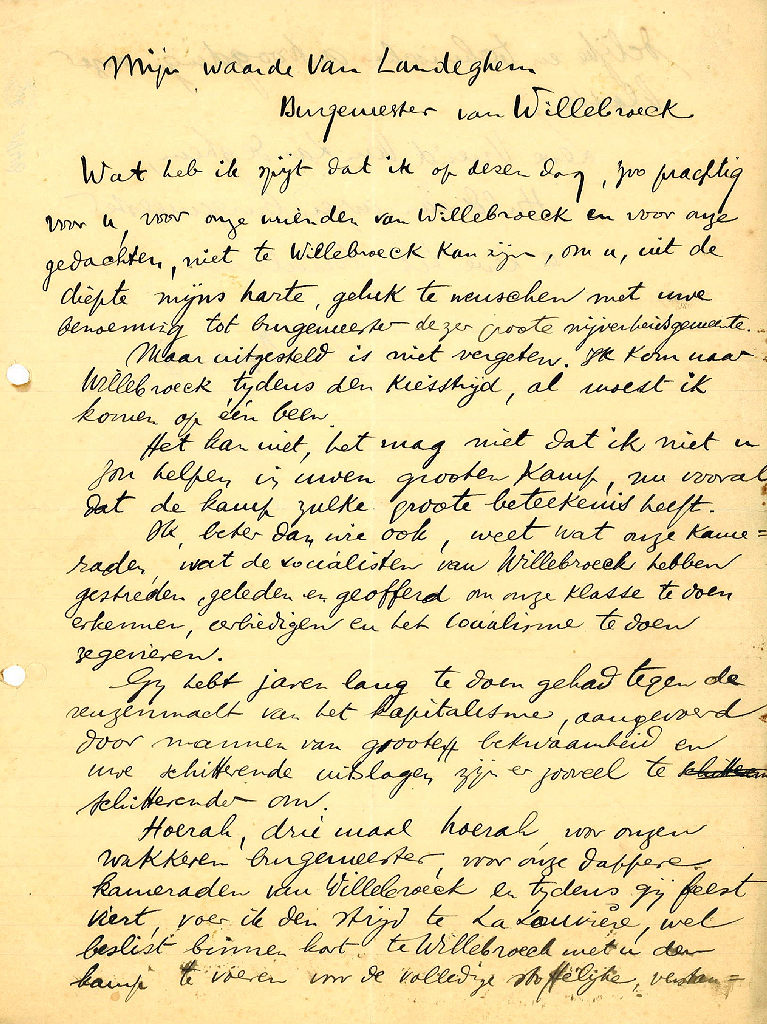 Mijn waarde Van Landeghem
Burgemeester van Willebroeck
Wat heb ik spijt dat ik op dezen dag, zoo prachtig
voor u, voor onze vrienden van Willebroeck en voor onze
gedachten, niet te Willebroeck kan zijn, om u, uit de
diepte mijns harte, geluk te wenschen met uwe
benoeming tot burgemeester dezer groote nijverheidsgemeente.
Maar uitgesteld is niet vergeten. Ik kom naar
Willebroeck tydens den kiesstrijd, al moest ik
komen op één been.
Het kan niet, het mag niet dat ik niet u
zou helpen in uwen grooten kamp, nu vooral
dat de kamp zulke groote beteekenis heeft.
Ik, beter dan wie ook, weet wat onze kame=
raden, wat de socialisten van Willebroeck hebben
gestreden, geleden en geofferd om onze klasse te doen
erkennen, eerbiedigen en het socialisme te doen
zegevieren.
Gij hebt jaren lang te doen gehad tegen de
reuzenmacht van het kapitalisme, aangevoerd
door mannen van groote bekwaamheid en
uwe schitterende uitslagen zijn er zooveel te
schitterender om.
Hoerah, drie maal hoerah, voor onzen
wakkeren burgemeester, voor onze dappere
kameraden van Willebroeck en tydens gij feest
viert, voer ik den strijd te La Louvière, wel
beslist binnen kort te Willebroeck met u den
kamp te voeren voor de volledige stoffelijke, verstan=